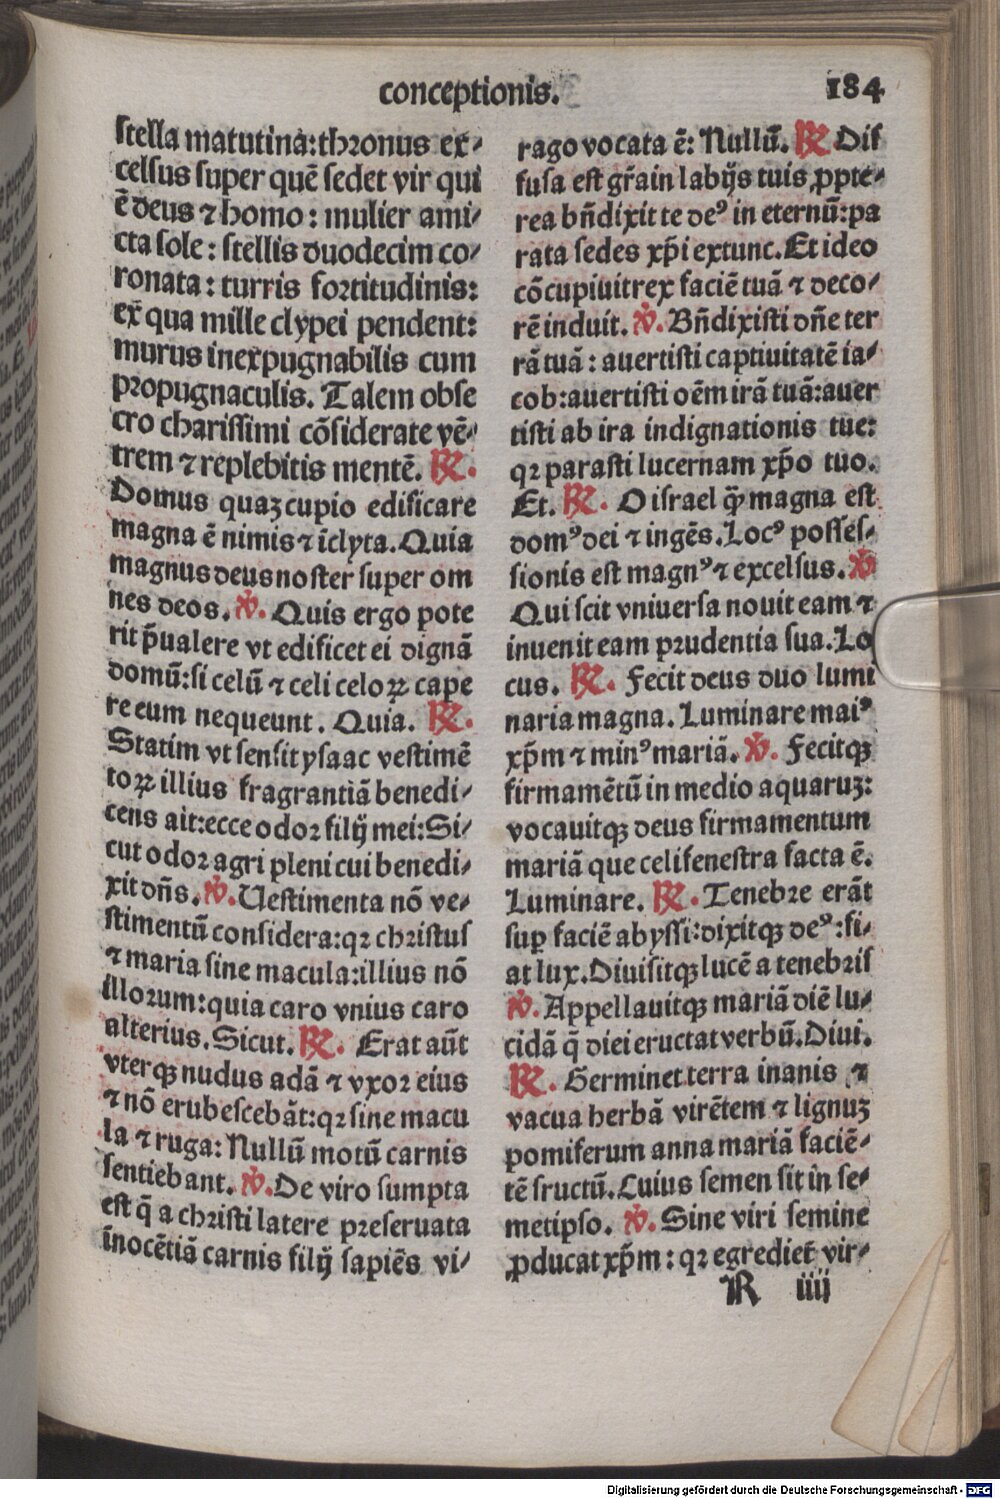 conceptionis.
184
stella matutina:thronus ex⸗
celsus super quē sedet vir qui
ē deus ⁊ homo: mulier ami⸗
cta sole: stellis duodecim co⸗
ronata: turris fortitudinis:
ex qua mille clypei pendent:
murus inexpugnabilis cum
propugnaculis. Talem obse
cro charissimi cōsiderate vē⸗
trem ⁊ replebitis mentē. ℟.
Domus quaꝫ cupio edificare
magna ē nimis ⁊ īclyta. Quia
magnus deus noster super om
nes deos. ℣. Quis ergo pote
rit p̄ualere vt edificet ei dignā
domū: si celū ⁊ celi celoꝝ cape
re eum nequeunt. Quia. ℟.
Statim vt sensit ysaac vestimē
toꝝ illius fragrantiā benedi⸗
cens ait: ecce odor filij mei: Si⸗
cut odor agri pleni cui benedi⸗
xit dn̄s. ℣. Uestimenta nō ve⸗
stimentū considera: qꝛ christus
⁊ maria sine macula: illius nō
illorum: quia caro vnius caro
alterius. Sicut. ℟. Erat aūt
vterqꝫ nudus adā ⁊ vxor eius
⁊ nō erubescebāt: qꝛ sine macu
la ⁊ ruga: Nullū motū carnis
sentiebant. ℣. De viro sumpta
est q̄ a christi latere preseruata
īnocētiā carnis filij sapiēs vi⸗
rago vocata ē: Nullū. ℟. Dif
fusa est gr̄a in labijs tuis ꝓpte⸗
rea bn̄dixit te deꝰ in eternū: pa
rata sedes xp̄i extunc. Et ideo
cōcupiuit rex faciē tuā ⁊ deco⸗
rē induit. ℣. Bn̄dixisti dn̄e ter
rā tuā: auertisti captiuitatē ia⸗
cob: auertisti oēm irā tuā: auer
tisti ab ira indignationis tue:
qꝛ parasti lucernam xp̄o tuo.
Et. ℟. O israel q̄ꝫ magna est
domꝰ dei ⁊ ingēs. Locꝰ posses⸗
sionis est magnꝰ ⁊ excelsus. ℣
Qui scit vniuersa nouit eam ⁊
inuenit eam prudentia sua. Lo
cus. ℟. Fecit deus duo lumi
naria magna. Luminare maiꝰ
xp̄m ⁊ minꝰ mariā. ℣. Fecitqꝫ
firmamētū in medio aquaruꝫ:
vocauitqꝫ deus firmamentum
mariā que celi fenestra facta ē.
Luminare. ℟. Tenebre erāt
suꝑ faciē abyssi: dixitqꝫ deꝰ: fi⸗
at lux. Diuisitqꝫ lucē a tenebris
℣. Appellauitqꝫ mariā diē lu⸗
cidā q̄ diei eructat verbū. Diui.
℟. Germinet terra inanis ⁊
vacua herbā virētem ⁊ lignuꝫ
pomiferum anna mariā faciē⸗
tē fructū. Cuius semen sit in se⸗
metipso. ℣. Sine viri semine
ꝓducat xp̄m: qꝛ egrediet̄ vir⸗
R iiij
Digitalisierung gefördert durch die Deutsche Forschungsgemeinschaft - DFG